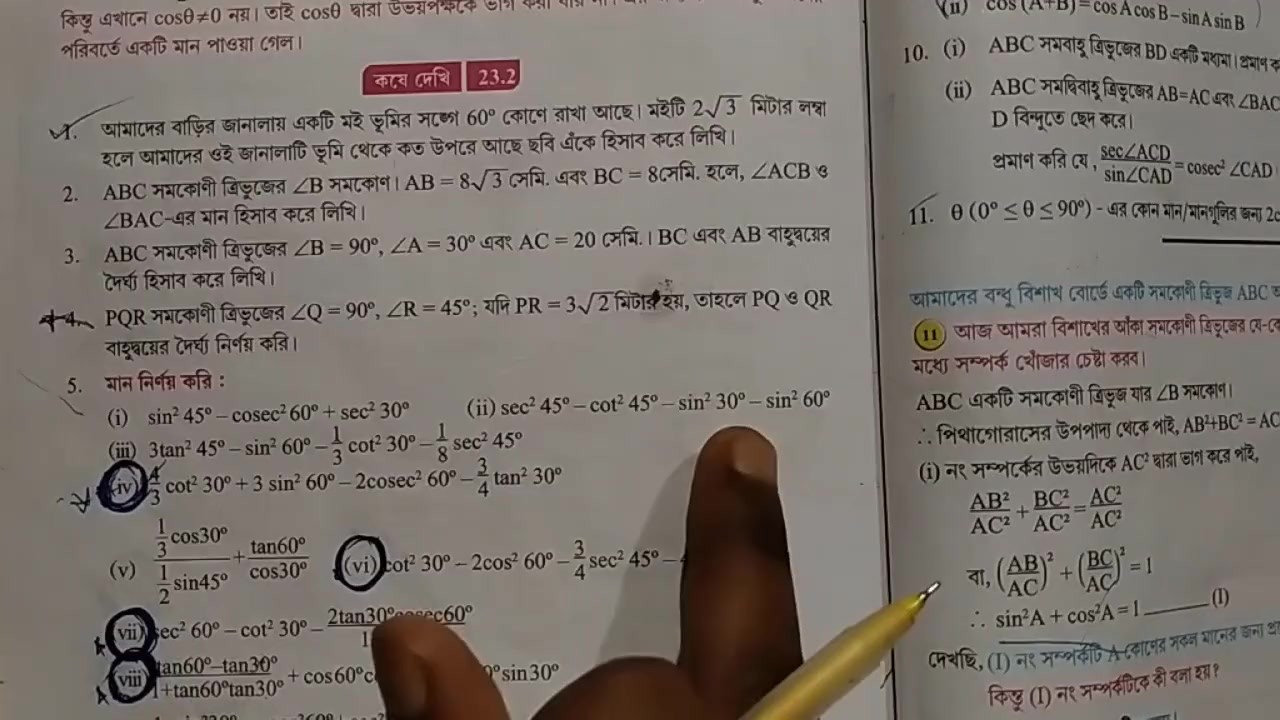 কিন্তু এখানে cosθ≠0 নয়। তাই cosθ দ্বারা উভয়পক্ষকে ভাগ করা
পরিবর্তে একটি মান পাওয়া গেল।
কষে দেখি 23.2
1. আমাদের বাড়ির জানালায় একটি মই ভূমির সঙ্গে 60° কোণে রাখা আছে। মইটি 2√3 মিটার লম্বা
হলে আমাদের ওই জানালাটি ভূমি থেকে কত উপরে আছে ছবি এঁকে হিসাব করে লিখি।
2. ABC সমকোণী ত্রিভুজের ∠B সমকোণ। AB = 8√3 সেমি. এবং BC = 8সেমি. হলে, ∠ACB ও
∠BAC-এর মান হিসাব করে লিখি।
3. ABC সমকোণী ত্রিভুজের ∠B = 90°, ∠A = 30° এবং AC = 20 সেমি.। BC এবং AB বাহুদ্বয়ের
দৈর্ঘ্য হিসাব করে লিখি।
4. PQR সমকোণী ত্রিভুজের ∠Q = 90°, ∠R = 45°; যদি PR = 3√2 মিটার হয়, তাহলে PQ ও QR
বাহুদ্বয়ের দৈর্ঘ্য নির্ণয় করি।
5. মান নির্ণয় করি :
(i) sin² 45° – cosec² 60° + sec² 30° (ii) sec² 45° – cot² 45° – sin² 30° – sin² 60°
(iii) 3tan² 45° – sin² 60° – 1/3 cot² 30° – 1/8 sec² 45°
(iv) 4/3 cot² 30° + 3 sin² 60° – 2cosec² 60° – 3/4 tan² 30°
(v) (1/3 cos30°)/(1/2 sin45°) + tan60°/cos30° (vi) cot² 30° – 2cos² 60° – 3/4 sec² 45° –
(vii) sec² 60° – cot² 30° – 2tan30°cosec60°
(viii) (tan60°–tan30°)/(1+tan60°tan30°) + cos60° sin30°
(ii) cos (A+B) = cos A cos B – sin A sin B
10. (i) ABC সমবাহু ত্রিভুজের BD একটি মধ্যমা। প্রমাণ
(ii) ABC সমদ্বিবাহু ত্রিভুজের AB=AC এবং ∠BAC
D বিন্দুতে ছেদ করে।
প্রমাণ করি যে, sec∠ACD/sin∠CAD = cosec² ∠CAD
11. θ (0° ≤ θ ≤ 90°) - এর কোন মান/মানগুলির জন্য
আমাদের বন্ধু বিশাখ বোর্ডে একটি সমকোণী ত্রিভুজ ABC
11 আজ আমরা বিশাখের আঁকা সমকোণী ত্রিভুজের
মধ্যে সম্পর্ক খোঁজার চেষ্টা করব।
ABC একটি সমকোণী ত্রিভুজ যার ∠B সমকোণ।
∴ পিথাগোরাসের উপপাদ্য থেকে পাই, AB²+BC² = AC
(i) নং সম্পর্কের উভয়দিকে AC² দ্বারা ভাগ করে পাই,
AB²/AC² + BC²/AC² = AC²/AC²
বা, (AB/AC)² + (BC/AC)² = 1
∴ sin²A + cos²A = 1 (I)
দেখছি, (I) নং সম্পর্কটি A কোণের সকল মানের জন্য
কিন্তু (I) নং সম্পর্কটিকে কী বলা হয়?